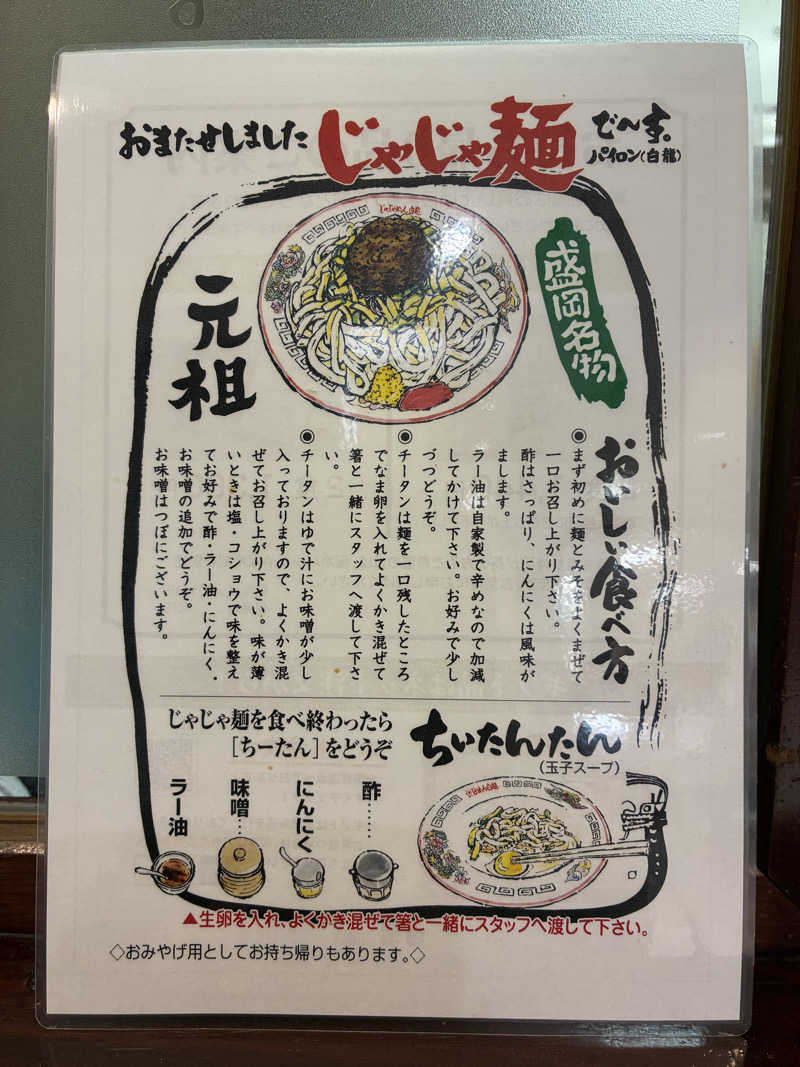 おまたせしました じゃじゃ麺 で〜す。
パイロン(白龍)
じゃじゃめん白龍
元祖
盛岡名物
おいしい食べ方
◉まず初めに麺とみそをよくまぜて
一口お召し上がり下さい。
酢はさっぱり、にんにくは風味が
まします。
ラー油は自家製で辛めなので加減
してかけて下さい。お好みで少し
づつどうぞ。
◉チータンは麺を一口残したところ
でなま卵を入れてよくかき混ぜて
箸と一緒にスタッフへ渡して下さ
い。
◉チータンはゆで汁にお味噌が少し
入っておりますので、よくかき混
ぜてお召し上がり下さい。味が薄
いときは塩・コショウで味を整え
てお好みで酢・ラー油・にんにく・
お味噌の追加でどうぞ。
お味噌はつぼにございます。
じゃじゃ麺を食べ終わったら
[ちーたん]をどうぞ
ちいたんたん
(玉子スープ)
酢……
にんにく
味噌…
ラー油
▲生卵を入れ、よくかき混ぜて箸と一緒にスタッフへ渡して下さい。
◇おみやげ用としてお持ち帰りもあります。◇